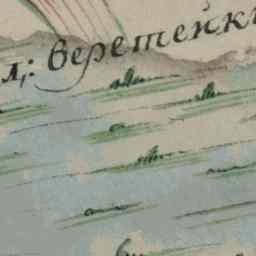 л: веретейки